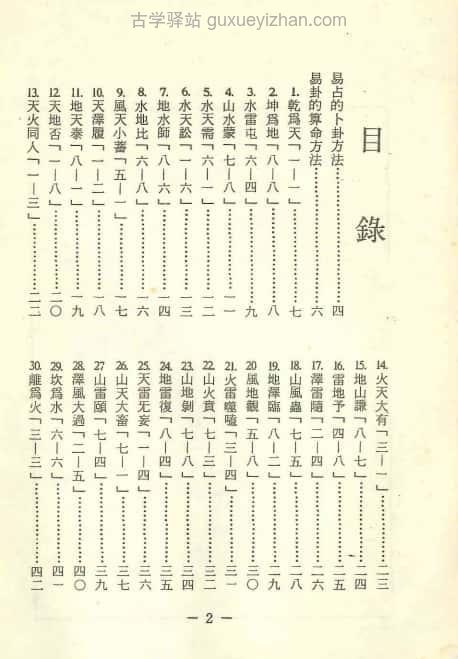 古学驿站 guxueyizhan.com
目錄
易占的卜卦方法……四
易卦的算命方法……六
1. 乾爲天「一—一」……七
2. 坤爲地「八—八」……八
3. 水雷屯「六—四」……九
4. 山水蒙「七—六」……一一
5. 水天需「六—一」……一二
6. 水天訟「一—六」……一三
7. 地水師「八—六」……一四
8. 水地比「六—八」……一六
9. 風天小蓄「五—一」……一七
10. 天澤履「一—二」……一八
11. 地天泰「八—一」……一九
12. 天地否「一—八」……二〇
13. 天火同人「一—三」……二二
14. 火天大有「三—一」……二三
15. 地山謙「八—七」……二四
16. 雷地予「四—八」……二五
17. 澤雷隨「二—四」……二六
18. 山風蟲「七—五」……二八
19. 地澤臨「八—二」……二九
20 風地觀「五—八」……三〇
21. 火雷噬嗑「三—四」……三一
22. 山火賁「七—三」……三二
23. 山地剝「七—八」……三四
24. 地雷復「八—四」……三五
25. 天雷无妄「一—四」……三六
26. 山天大畜「七—一」……三七
27 山雷頤「七—四」……三九
28. 澤風大過「二—五」……四〇
29. 坎爲水「六—六」……四一
30. 離爲火「三—三」……四二
— 2 —